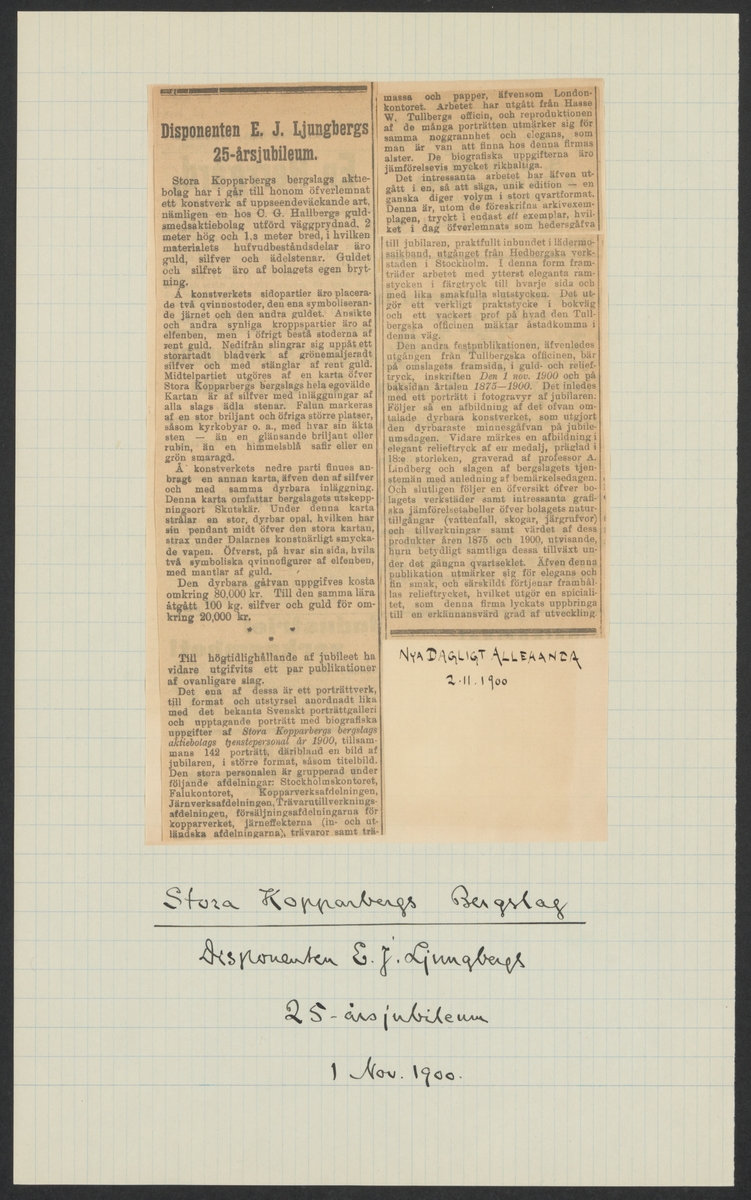 Disponenten E. J. Ljungbergs
25-årsjubileum.
Stora Kopparbergs bergslags aktie-
bolag har i går till honom öfverlemnat
ett konstverk af uppseendeväckande art,
nämligen en hos C. G. Hallbergs guld-
smedsaktiebolag utförd väggprydnad, 2
meter hög och 1.3 meter bred, i hvilken
materialets hufvudbeståndsdelar äro
guld, silfver och ädelstenar. Guldet
och silfret äro af bolagets egen bryt-
ning.
Å konstverkets sidopartier äro placera-
de två qvinnostoder, den ena symboliseran-
de järnet och den andra guldet. Ansikte
och andra synliga kroppspartier äro af
elfenben, men i öfrigt bestå stoderna af
rent guld. Nedifrån slingrar sig uppåt ett
storartadt bladverk af grönemaljeradt
silfver och med stänglar af rent guld.
Midtelpartiet utgöres af en karta öfver
Stora Kopparbergs bergslags hela egovälde
Kartan är af silfver med inläggningar af
alla slags ädla stenar. Falun markeras
af en stor briljant och öfriga större platser,
såsom kyrkobyar o. a., med hvar sin äkta
sten — än en glänsande briljant eller
rubin, än en himmelsblå safir eller en
grön smaragd.
Å konstverkets nedre parti finnes an-
bragt en annan karta, äfven den af silfver
och med samma dyrbara inläggning.
Denna karta omfattar bergslagets utskepp-
ningsort Skutskär. Under denna karta
strålar en stor, dyrbar opal, hvilken har
sin pendant midt öfver den stora kartan,
strax under Dalarnes konstnärligt smycka-
de vapen. Öfverst, på hvar sin sida, hvila
två symboliska qvinnofigurer af elfenben,
med mantlar af guld.
Den dyrbara gåfvan uppgifves kosta
omkring 80,000 kr. Till den samma lära
åtgått 100 kg. silfver och guld för om-
kring 20,000 kr.
* *
*
Till högtidlighållande af jubileet ha
vidare utgifvits ett par publikationer
af ovanligare slag.
Det ena af dessa är ett porträttverk,
till format och utstyrsel anordnadt lika
med det bekanta Svenskt porträttgalleri
och upptagande porträtt med biografiska
uppgifter af Stora Kopparbergs bergslags
aktiebolags tjenstepersonal år 1900, tillsam-
mans 142 porträtt, däribland en bild af
jubilaren, i större format, såsom titelbild.
Den stora personalen är grupperad under
följande afdelningar: Stockholmskontoret,
Falukontoret, Kopparverksafdelningen,
Järnverksafdelningen, Trävarutillverknings-
afdelningen, försäljningsafdelningarna för
kopparverket, järneffekterna (in- och ut-
ländska afdelningarna), trävaror samt trä-
massa och papper, äfvensom London-
kontoret. Arbetet har utgått från Hasse
W. Tullbergs officin, och reproduktionen
af de många porträtten utmärker sig för
samma noggrannhet och elegans, som
man är van att finna hos denna firmas
alster. De biografiska uppgifterna äro
jämförelsevis mycket rikhaltiga.
Det intressanta arbetet har äfven ut-
gått i en, så att säga, unik edition — en
ganska diger volym i stort qvartformat.
Denna är, utom de föreskrifna arkivexem-
plagen, tryckt i endast ett exemplar, hvil-
ket i dag öfverlemnats som hedersgåfva
till jubilaren, praktfullt inbundet i lädermo-
saikband, utgånget från Hedbergska verk-
staden i Stockholm. I denna form fram-
träder arbetet med ytterst eleganta ram-
stycken i färgtryck till hvarje sida och
med lika smakfulla slutstycken. Det ut-
gör ett verkligt praktstycke i bokväg
och ett vackert prof på hvad den Tull-
bergska officinen mäktar åstadkomma i
denna väg.
Den andra festpublikationen, äfvenledes
utgången från Tullbergska officinen, bär
på omslagets framsida, i guld- och relief-
tryck, inskriften Den 1 nov. 1900 och på
baksidan årtalen 1875—1900. Det inledes
med ett porträtt i fotogravyr af jubilaren.
Följer så en afbildning af det ofvan om-
talade dyrbara konstverket, som utgjort
den dyrbaraste minnesgåfvan på jubile-
umsdagen. Vidare märkes en afbildning i
elegant relieftryck af en medalj, präglad i
18:e storleken, graverad af professor A.
Lindberg och slagen af bergslagets tjen-
stemän med anledning af bemärkelsedagen.
Och slutligen följer en öfversikt öfver bo-
lagets verkstäder samt intressanta grafi-
ska jämförelsetabeller öfver bolagets natur-
tillgångar (vattenfall, skogar, järngrufvor)
och tillverkningar samt värdet af dess
produkter åren 1875 och 1900, utvisande,
huru betydligt samtliga dessa tillväxt un-
der det gångna qvartseklet. Äfven denna
publikation utmärker sig för elegans och
fin smak, och särskildt förtjenar framhål-
las relieftrycket, hvilket utgör en speciali-
tet, som denna firma lyckats uppbringa
till en erkännansvärd grad af utveckling.
NYA DAGLIGT ALLEHANDA
2.11.1900
Stora Kopparbergs Bergslag
Disponenten E. J. Ljungbergs
25-årsjubileum
1 Nov. 1900.